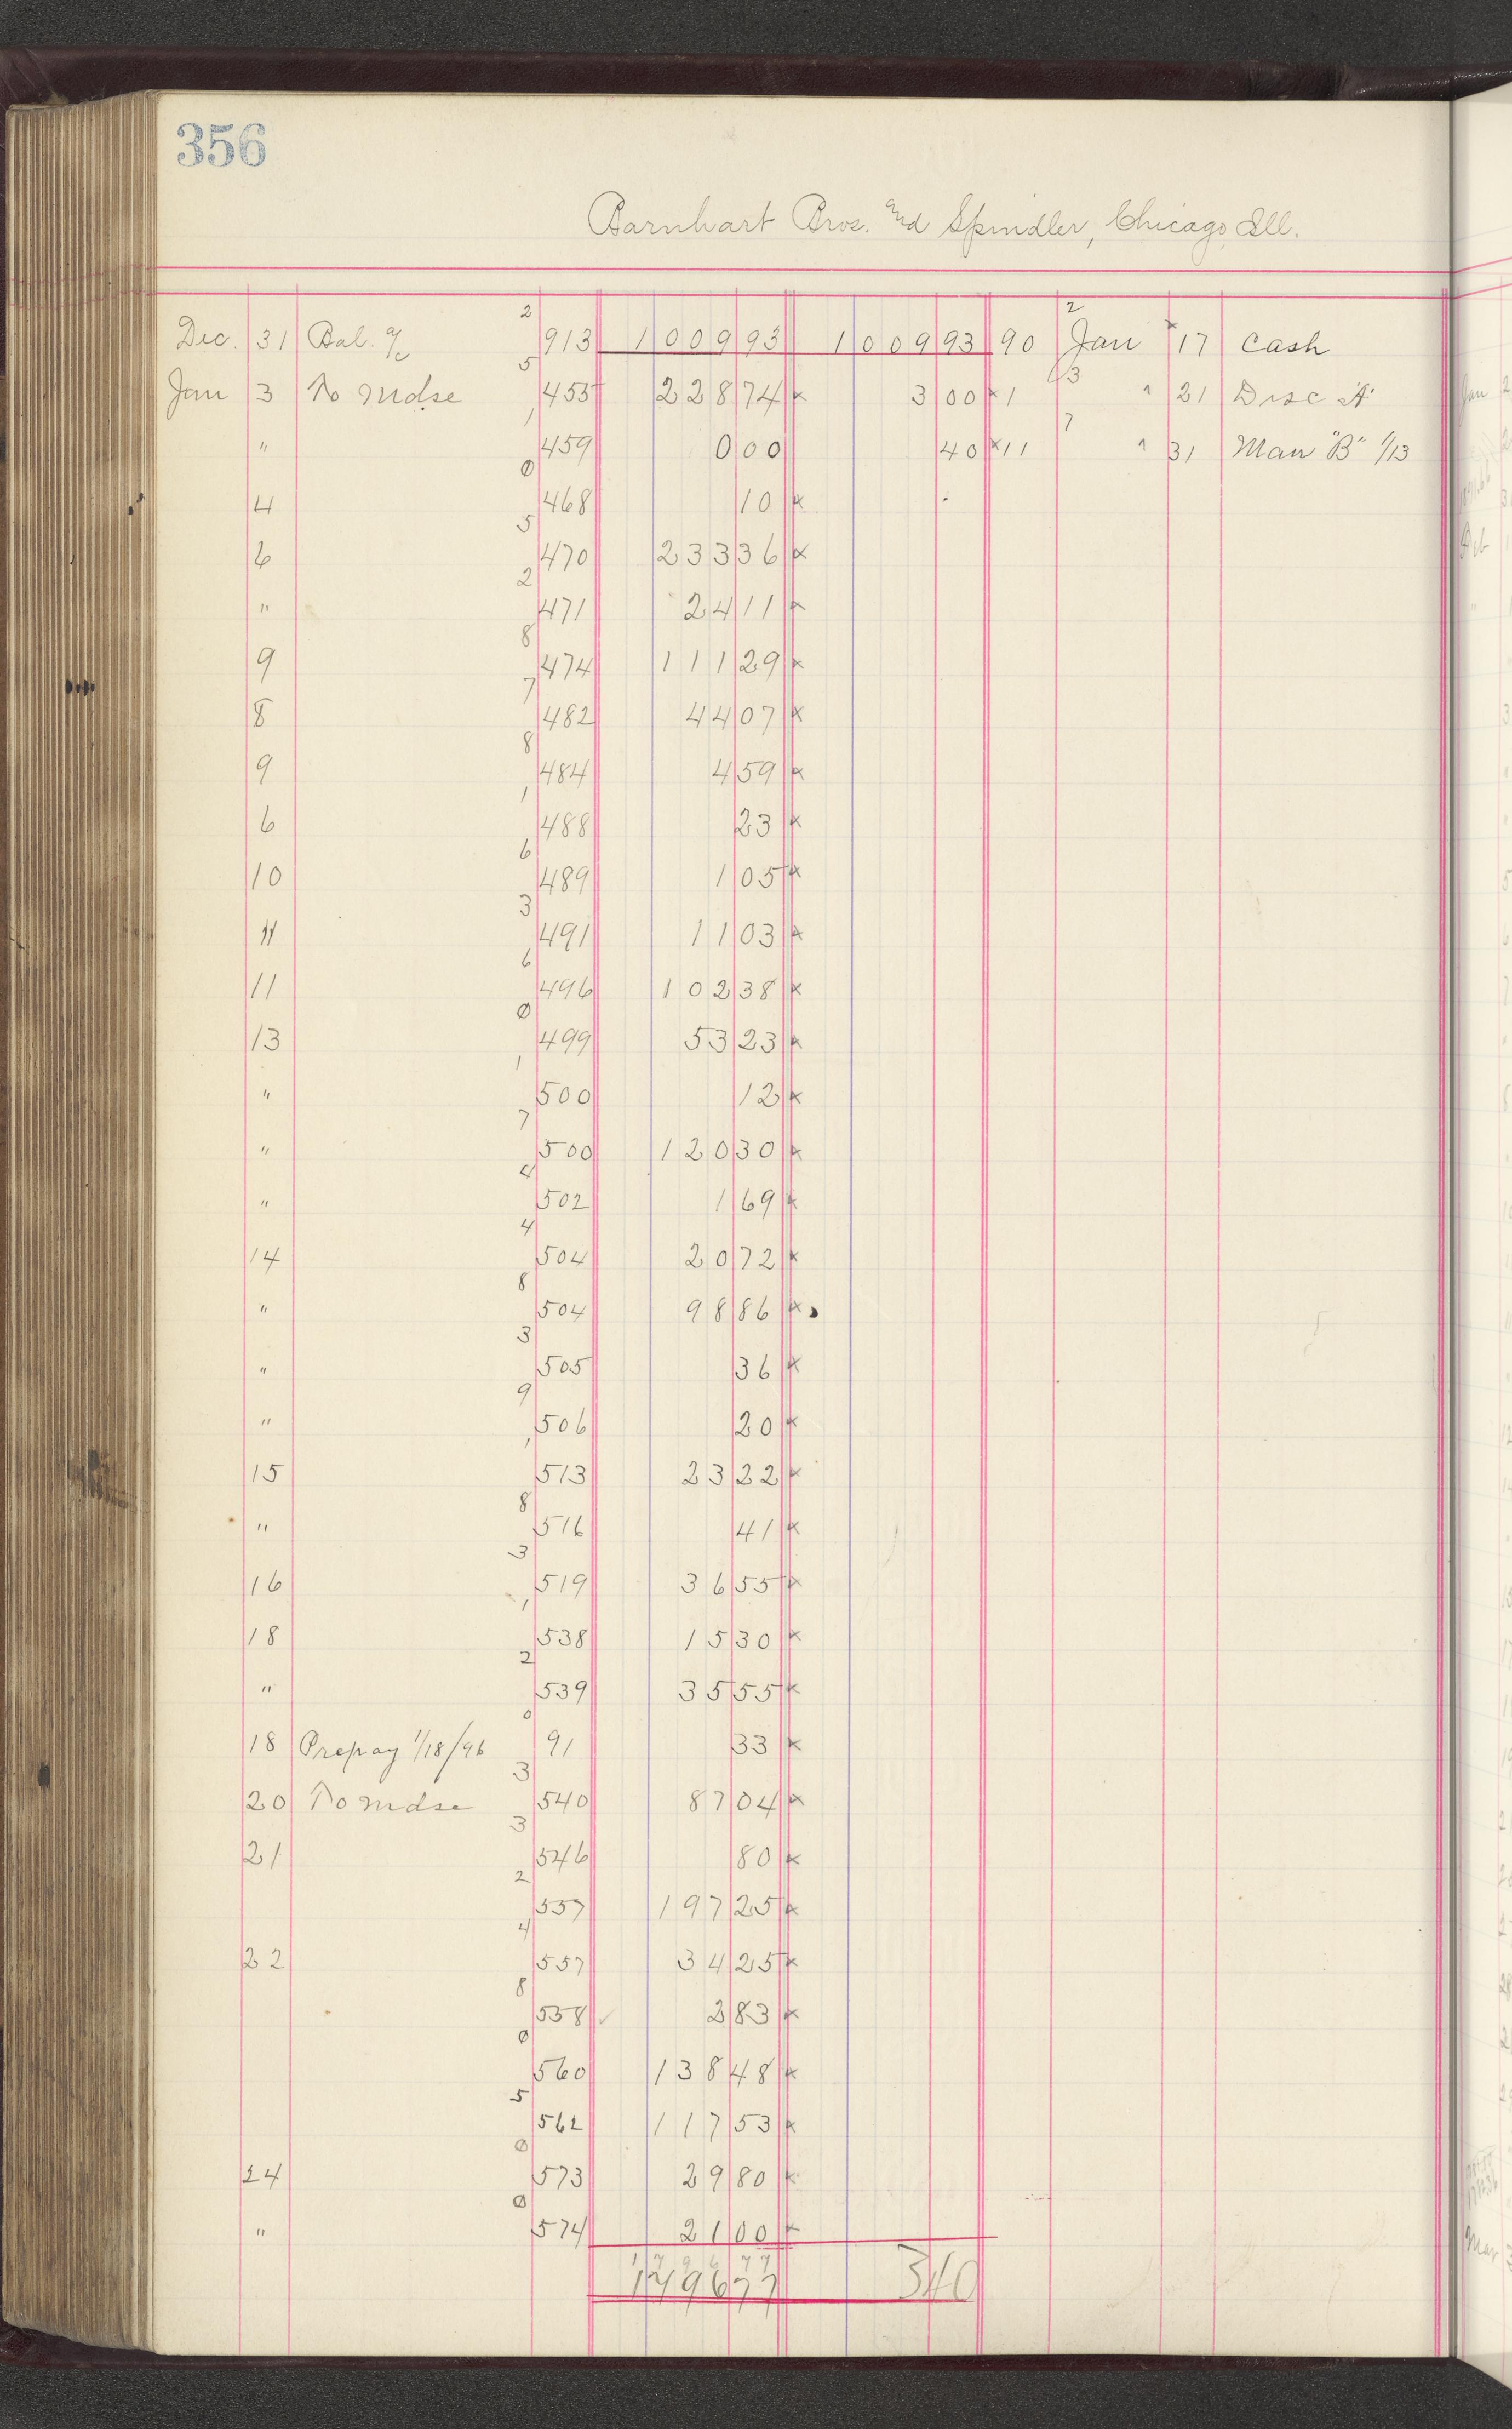 356
Barnhart Bros. and Spindler, Chicago, Ill.
Dec. 31 Bal. a/c 2 913 1009 93 1009 93 90 2 Jan 17 Cash
Jan 3 To Mdse 5 453 228 74 x 3 00 x 1 3 " 21 Disc "A"
" 1 459 0 00 40 x 11 7 " 31 Man "B" 1/13
4 0 468 10 x
6 5 470 233 36 x
" 2 471 24 11 x
9 8 474 111 29 x
8 7 482 44 07 x
9 8 484 4 59 x
6 1 488 23 x
10 6 489 1 05 x
11 3 491 11 03 x
11 6 496 102 38 x
13 0 499 53 23 x
" 1 500 12 x
" 7 500 120 30 x
" 4 502 1 69 x
14 4 504 20 72 x
" 8 504 98 86 x
" 3 505 36 x
" 9 506 20 x
15 1 513 23 22 x
" 8 516 41 x
16 3 519 36 55 x
18 1 538 15 30 x
" 2 539 35 55 x
18 Prepay 1/18/96 0 91 33 x
20 To Mdse 3 540 87 04 x
21 3 546 80 x
2 557 197 25 x
22 4 557 34 25 x
8 558 2 83 x
0 560 138 48 x
5 562 117 53 x
24 0 573 29 80 x
" 0 574 21 00 x
1796 77 3 40